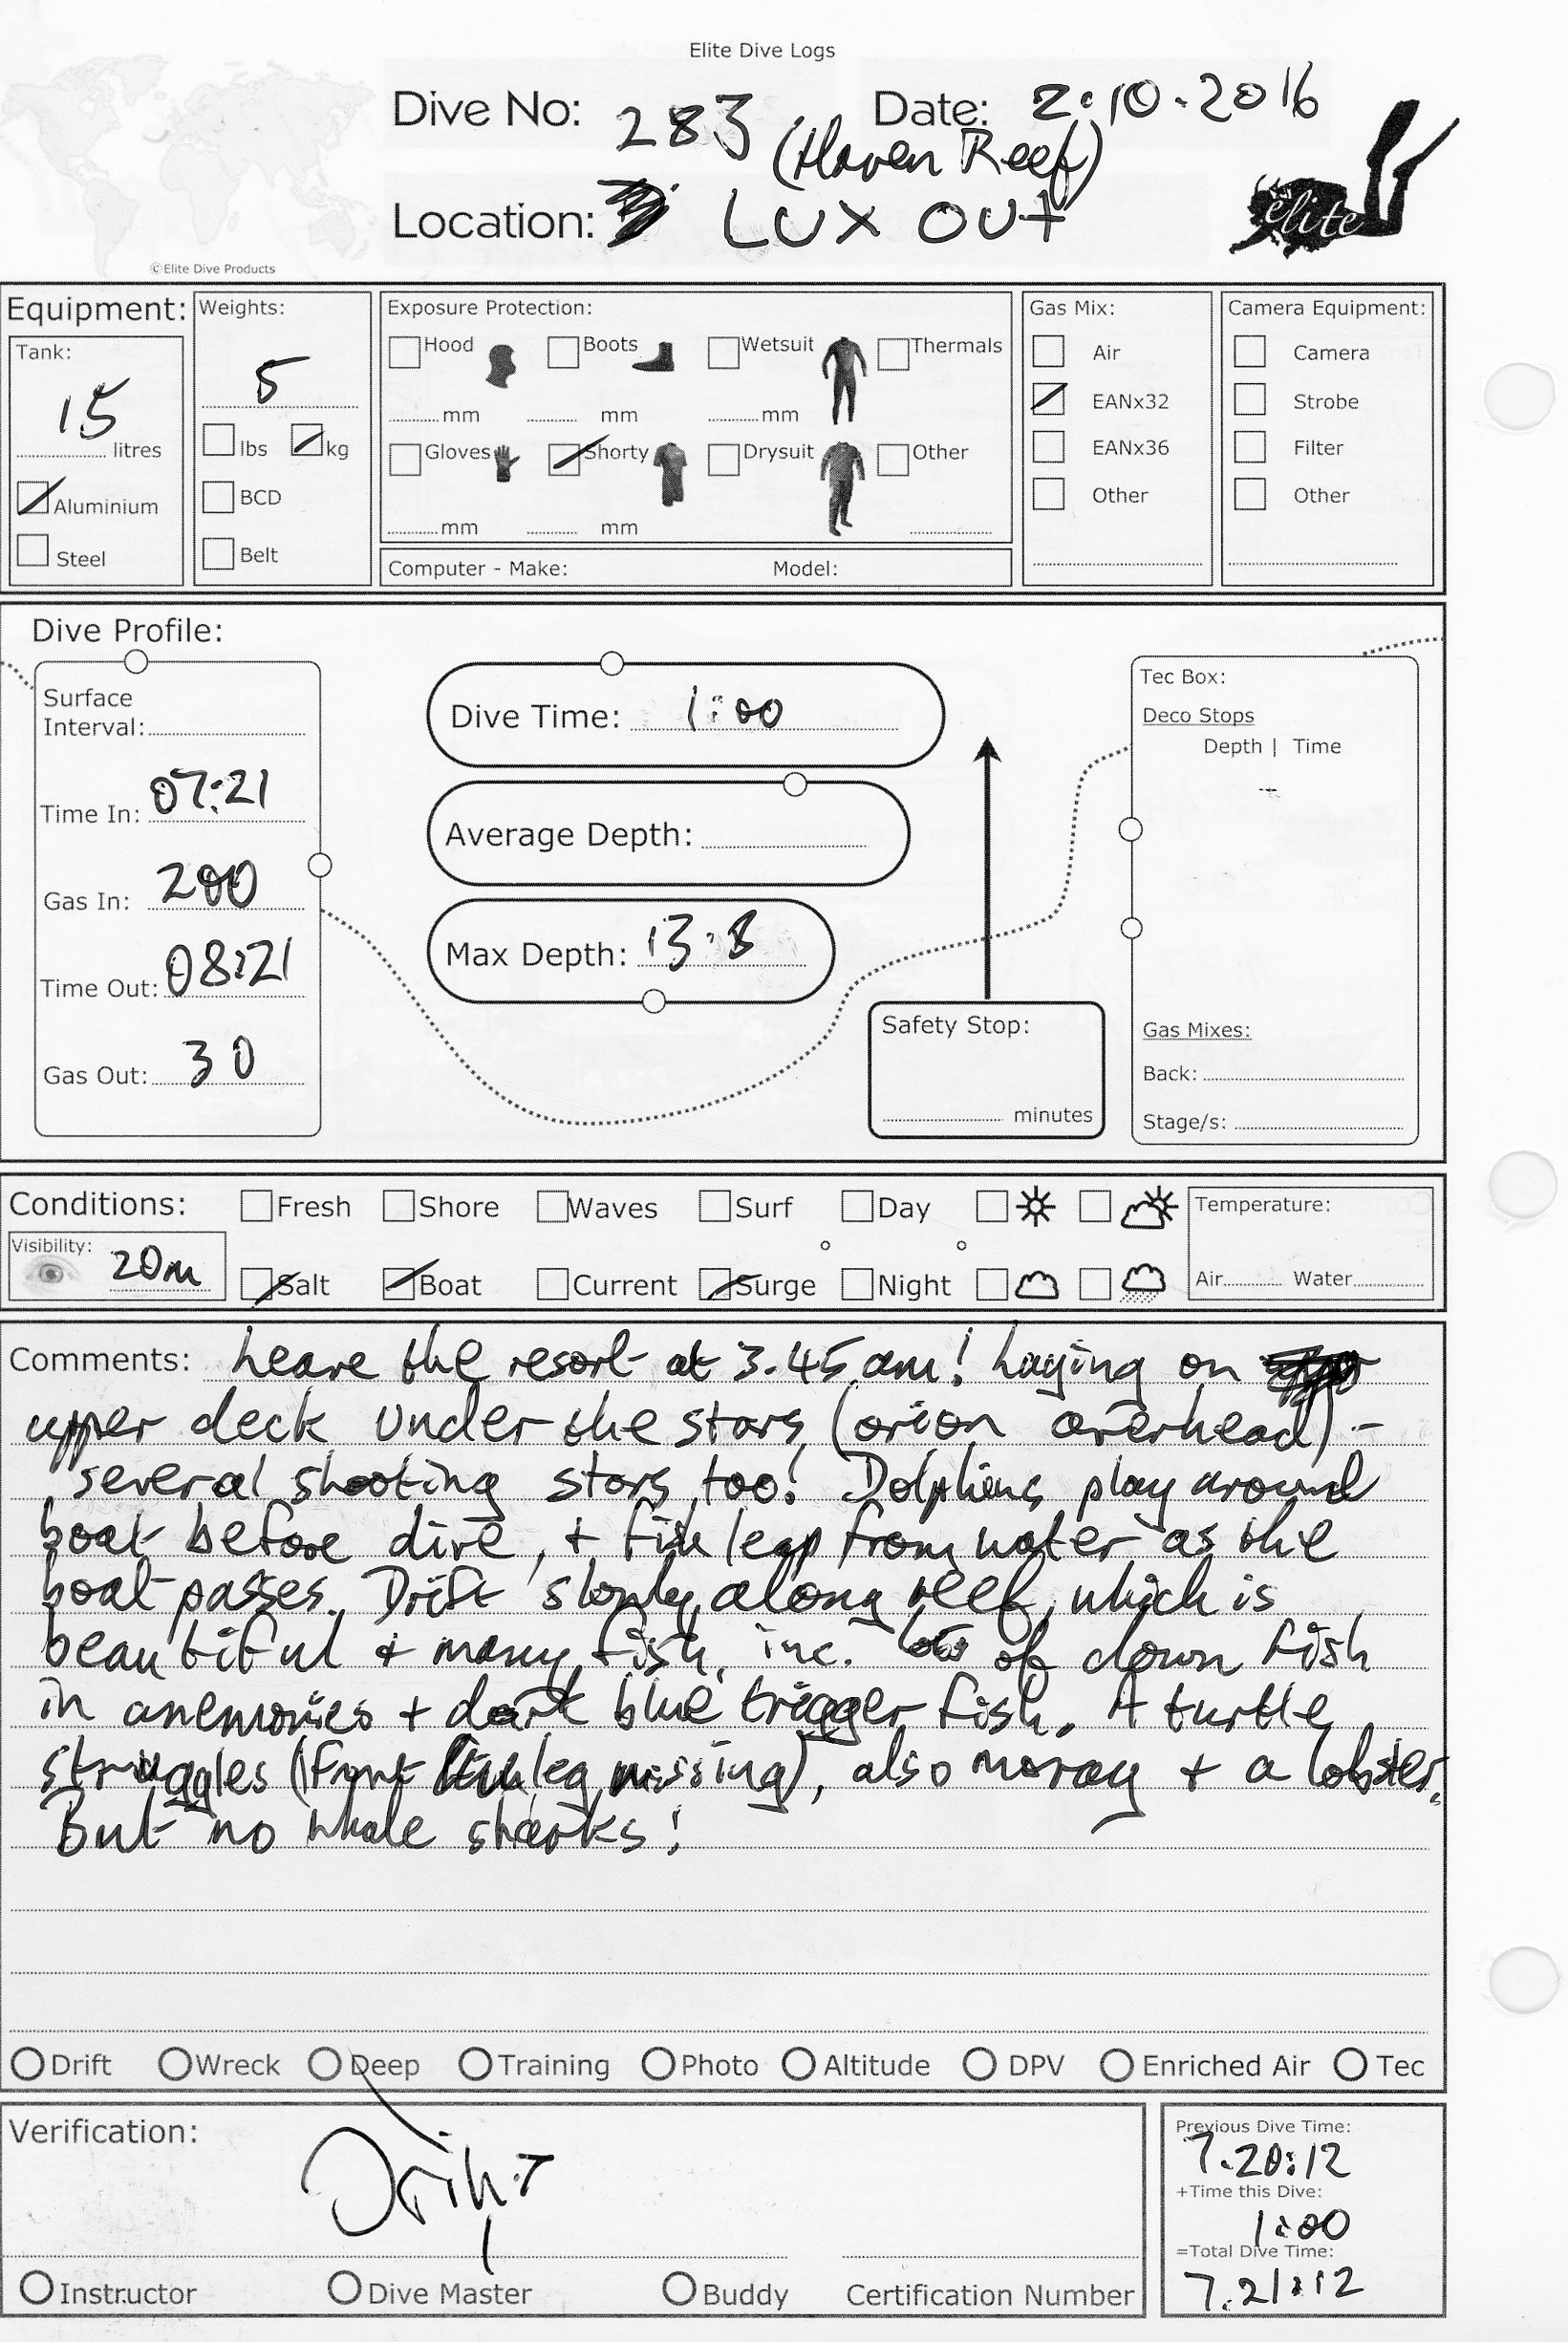 Elite Dive Logs
Dive No: 283 Date: 2.10.2016
(Haven Reef)
Location: LUX OUT
elite
©Elite Dive Products
Equipment: Weights: Exposure Protection: Gas Mix: Camera Equipment:
Tank: 5 Hood Boots Wetsuit Thermals Air Camera
15 litres mm mm mm EANx32 Strobe
lbs kg Gloves Shorty Drysuit Other EANx36 Filter
Aluminium BCD Other Other
Steel Belt mm mm
Computer - Make: Model:
Dive Profile:
Surface Interval:
Time In: 07:21
Gas In: 200
Time Out: 08:21
Gas Out: 30
Dive Time: 1:00
Average Depth:
Max Depth: 13.8
Safety Stop:
minutes
Tec Box:
Deco Stops
Depth | Time
Gas Mixes:
Back:
Stage/s:
Conditions: Fresh Shore Waves Surf Day Temperature:
Visibility: 20m Salt Boat Current Surge Night Air Water
Comments: Leave the resort at 3.45 am! Laying on
upper deck under the stars (orion overhead) -
several shooting stars too! Dolphins play around
boat before dive, + fish leap from water as the
boat passes. Drift slowly along reef, which is
beautiful + many fish, inc. lots of clown fish
in anemonies + dark blue trigger fish. A turtle
struggles (front leg missing), also moray + a lobster.
But no whale sharks!
Drift Wreck Deep Training Photo Altitude DPV Enriched Air Tec
Verification:
Instructor Dive Master Buddy Certification Number
Previous Dive Time:
7.20:12
+Time this Dive:
1:00
=Total Dive Time:
7.21:12